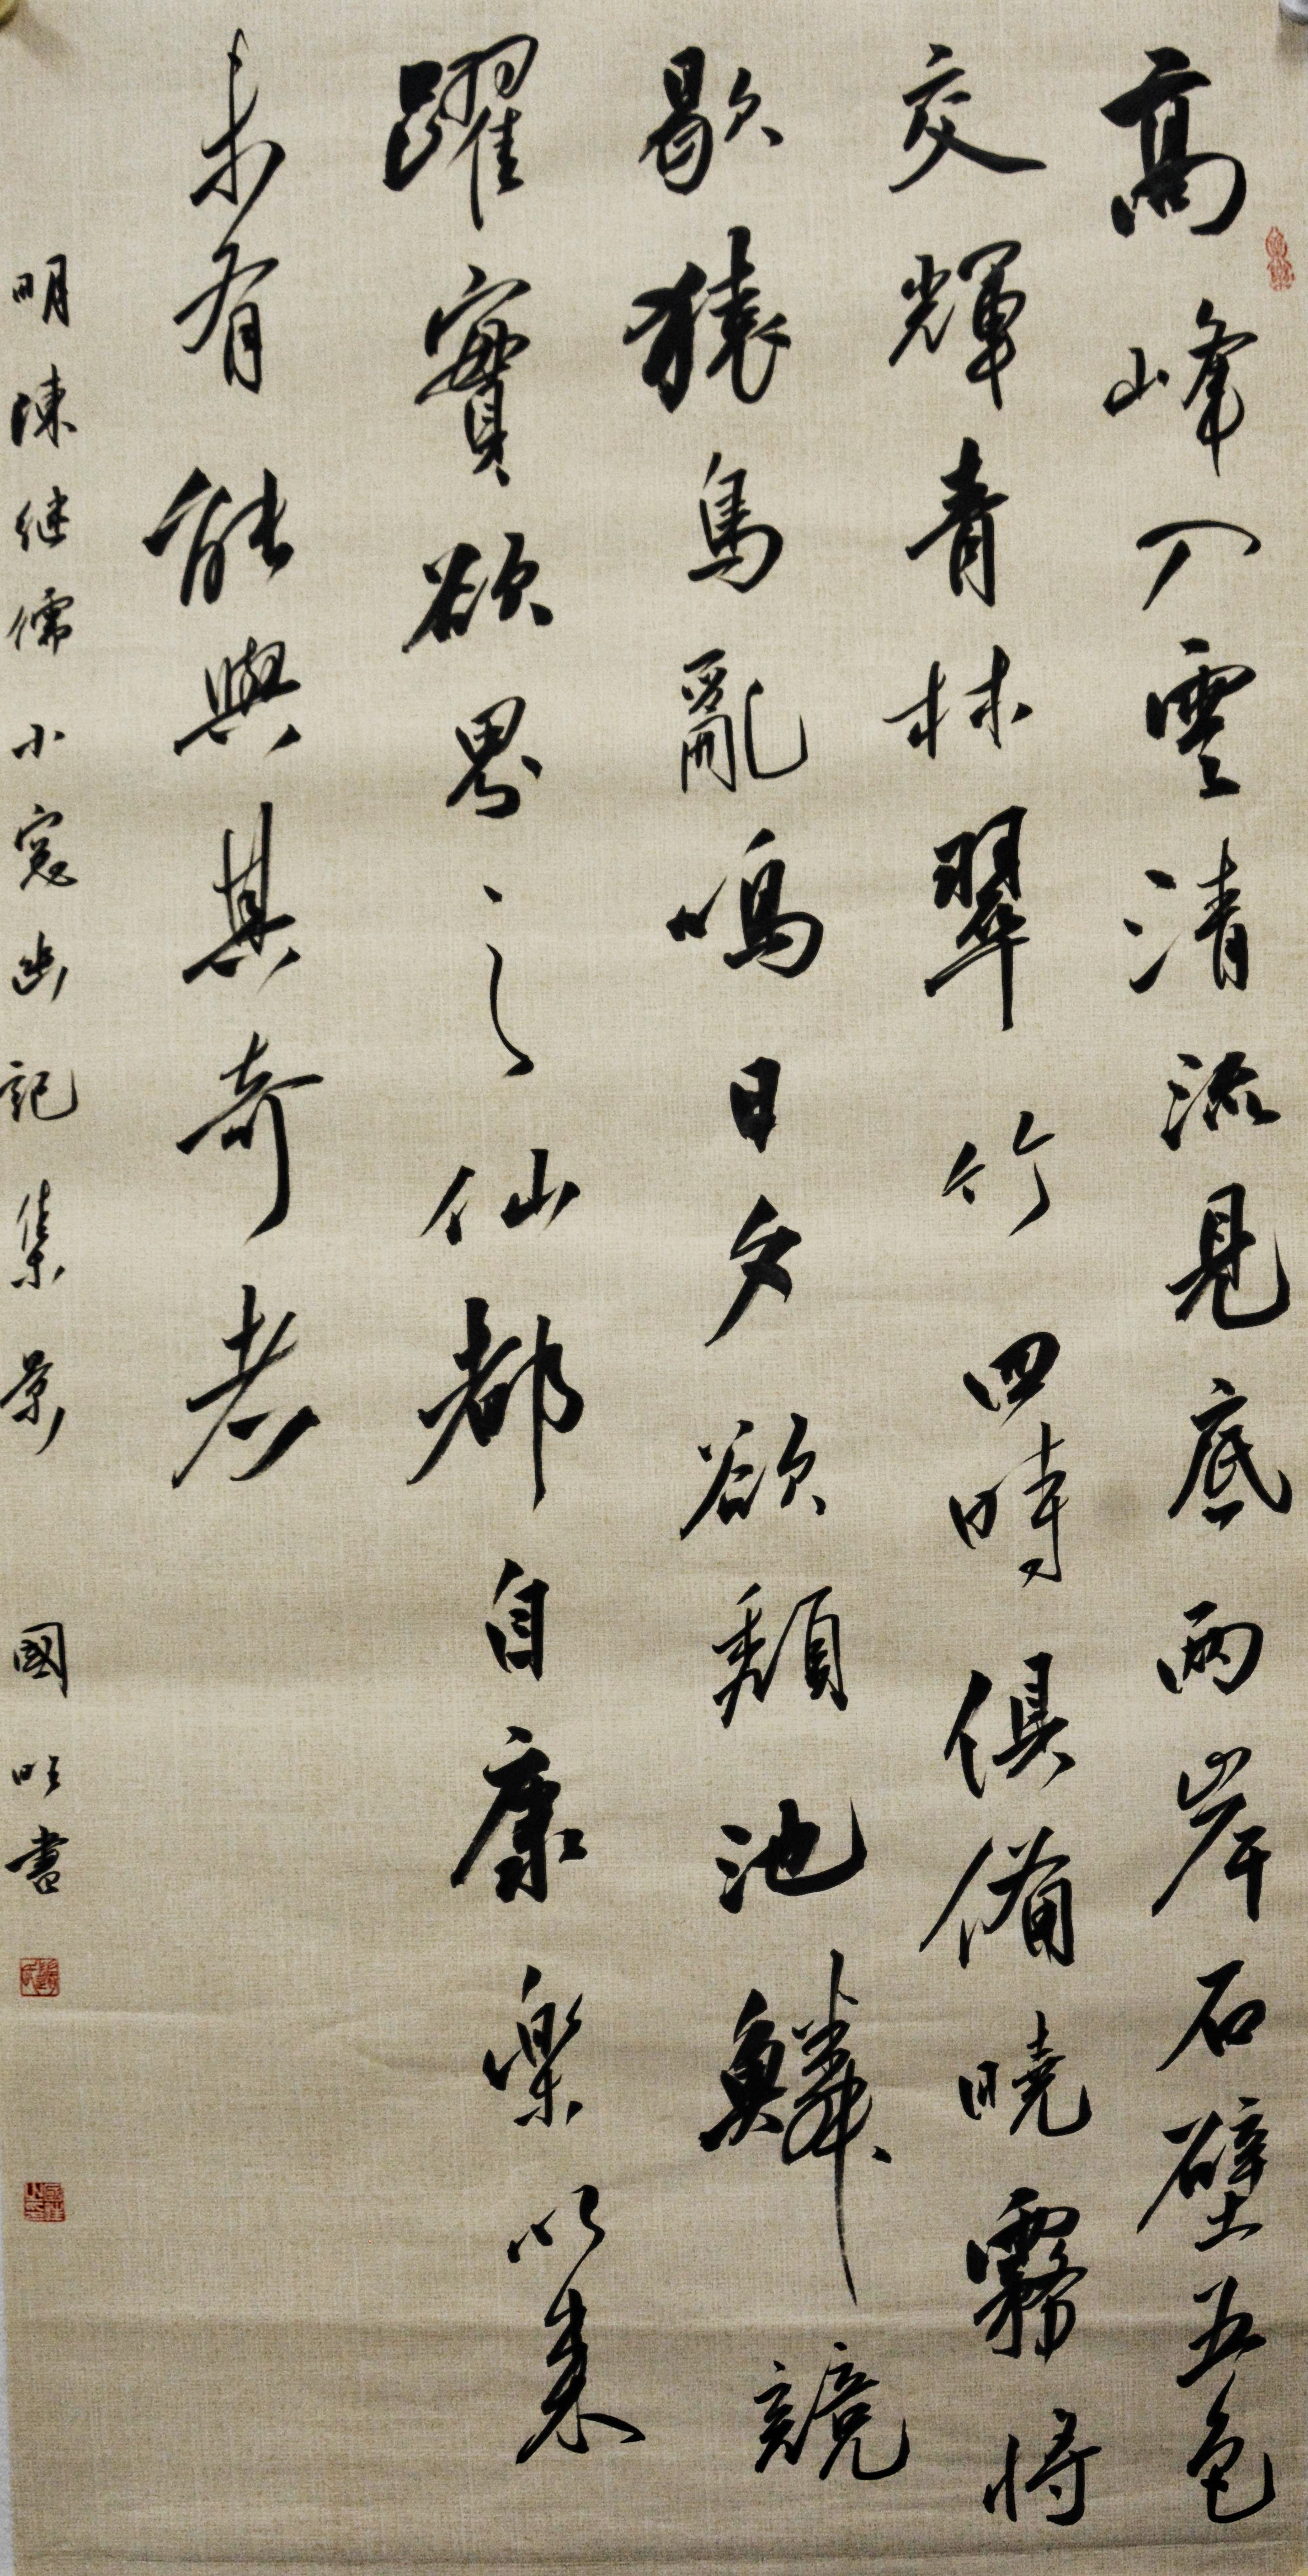 高峰入雲清流見底兩岸石壁五色
交輝青林翠竹四時俱備曉霧將
歇猿鳥亂鳴日夕欲頹池鱗競
躍實欲界之仙都自康樂以来
未有能與其奇者
明陳继儒小窓幽記集景 國旺書